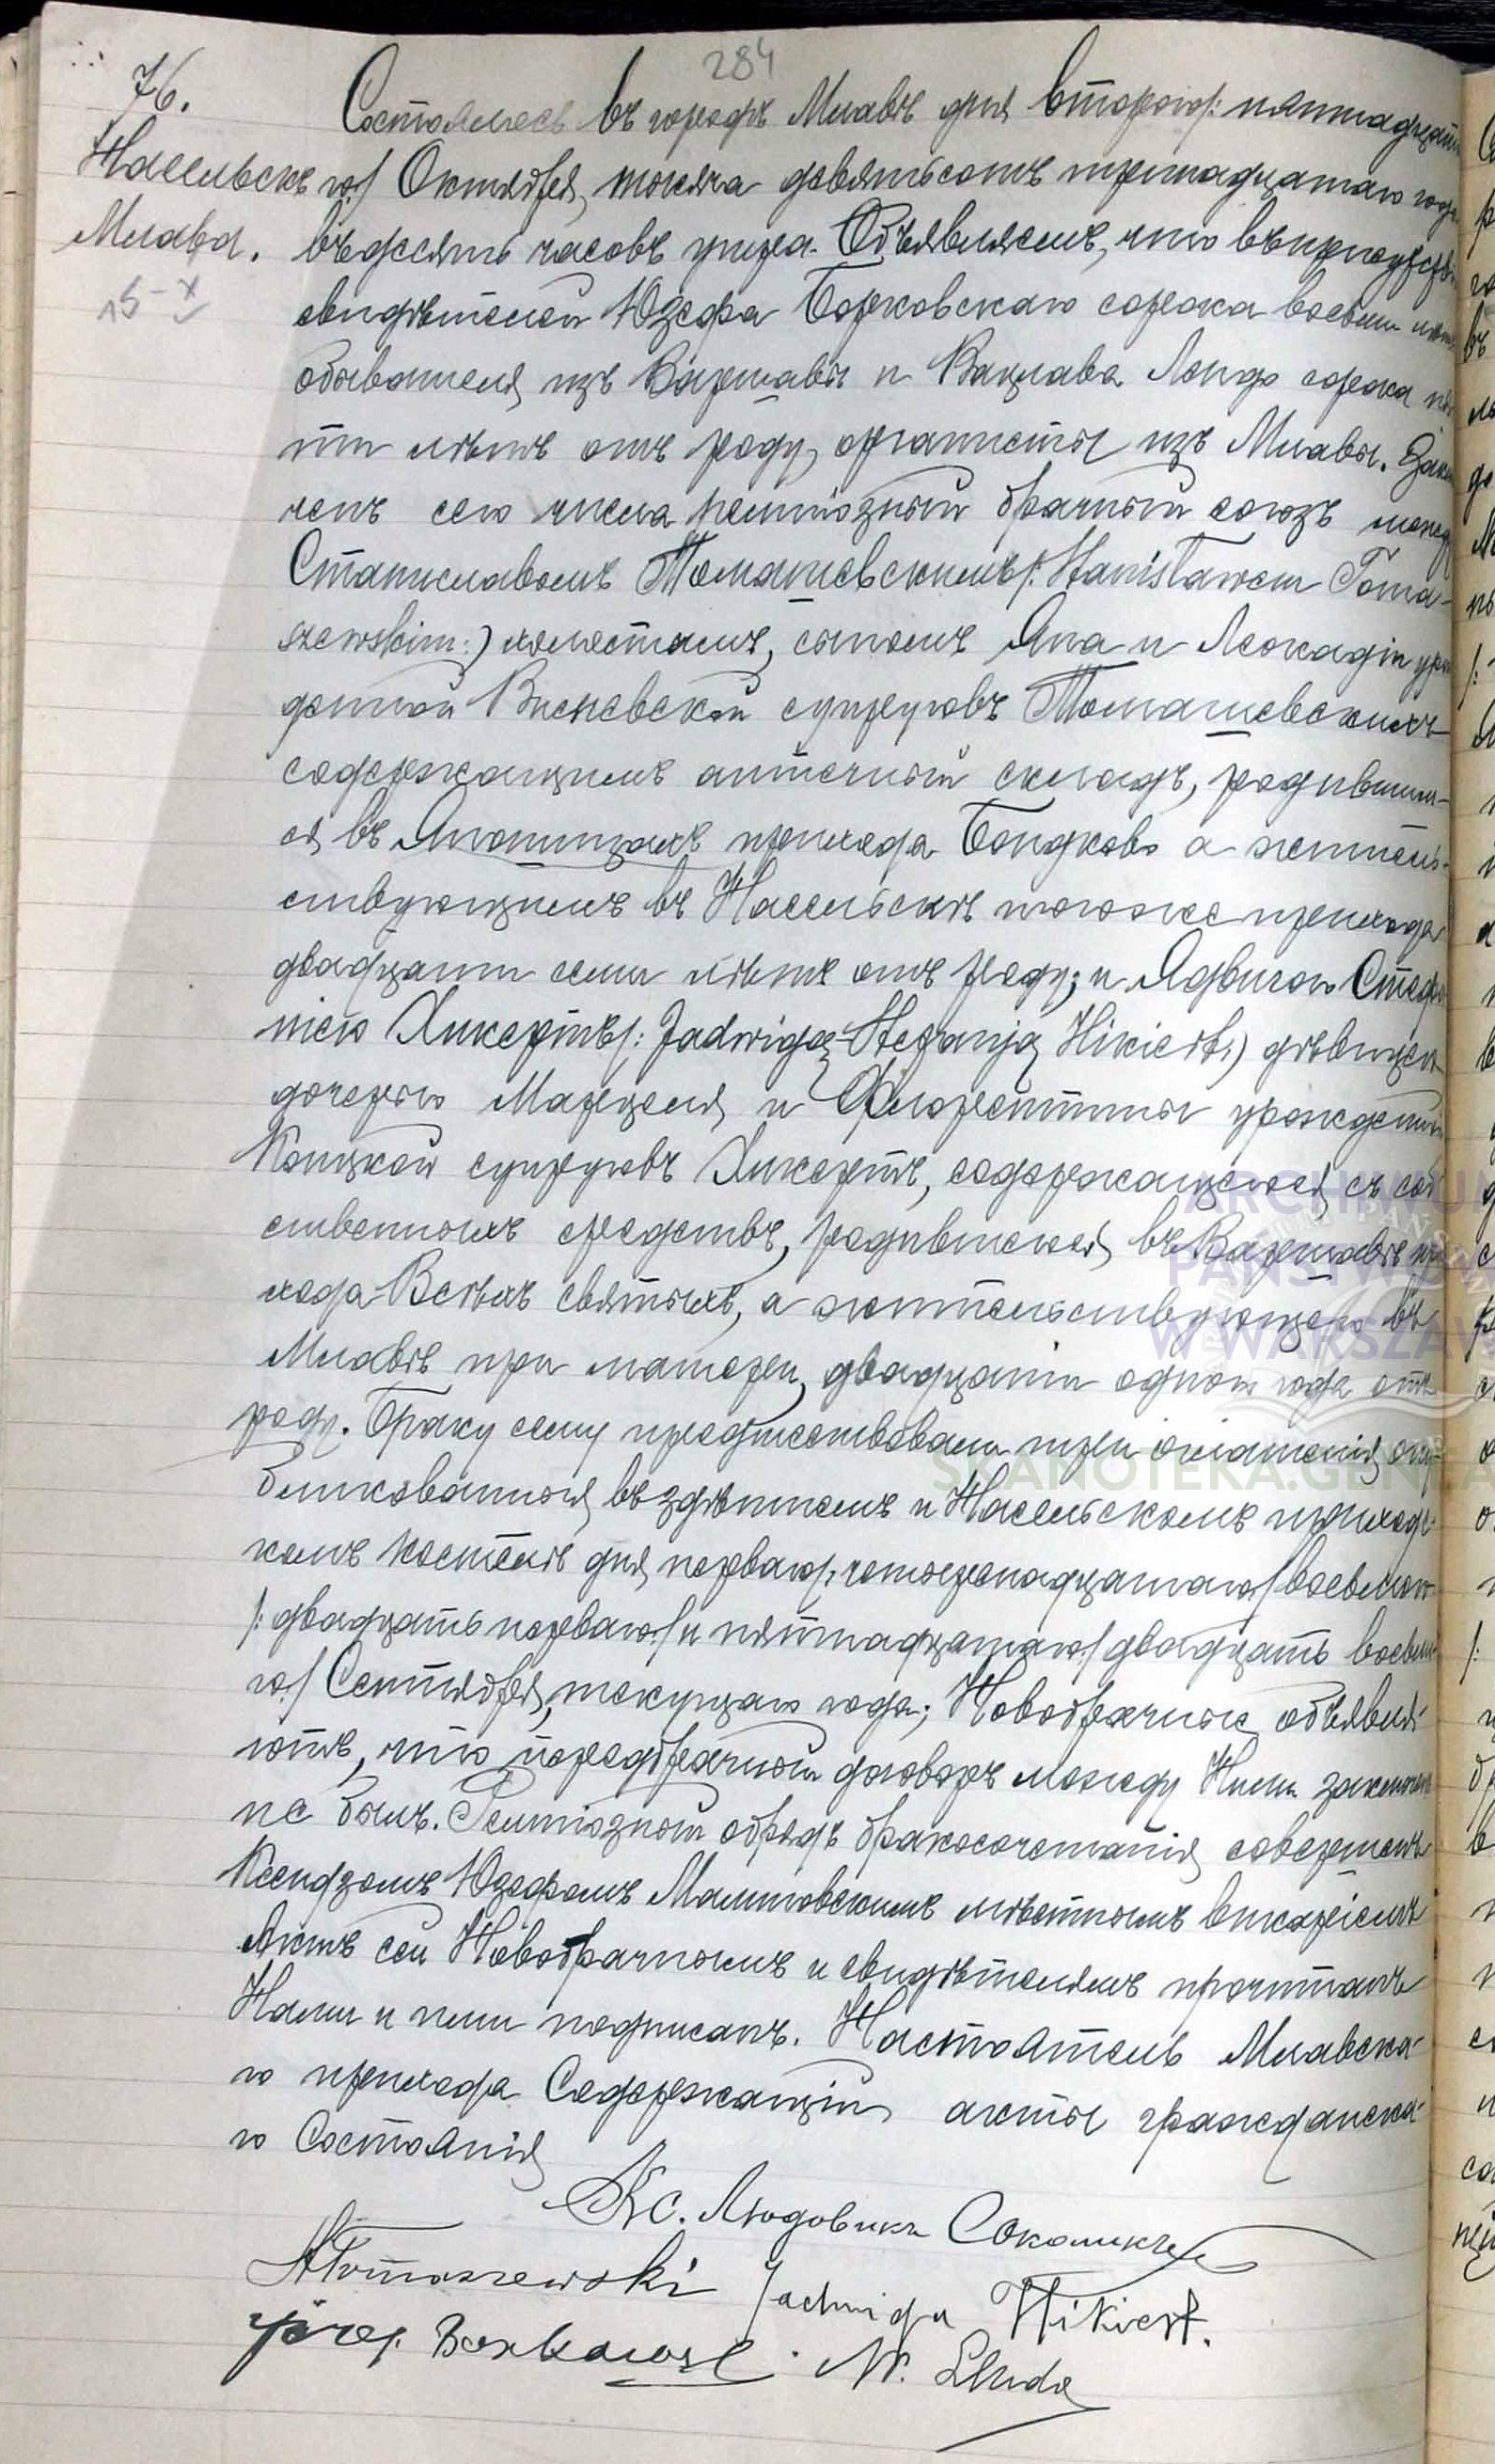 284
76.
Насельскъ
Млава.
15-X
Состоялось въ городѣ Млавѣ дня второго/: пятнадцата
го:/ Октября, тысяча девятьсотъ тринадцатаго года
въ десять часовъ утра. Объявляемъ, что въ присутств
свидѣтелей Юзефа Борковскаго сорока восьми лѣт
обывателя изъ Варшавы и Вацлава Лендо сорока пя
ти лѣтъ отъ роду, органисты изъ Млавы. Заклю
ченъ сего числа религіозный брачный союзъ между
Станиславомъ Томашевскимъ/: Stanisławem Toma-
szewskim:) холостымъ, сыномъ Яна и Леокадіи уро
жденной Висневской супруговъ Томашевскихъ
содержащимъ аптечный складъ, родившим-
ся въ прихода Бондково а житель-
ствующимъ въ Насельскѣ тогоже прихода
двадцати семи лѣтъ отъ роду; и Ядвигою Стефа
ніею Хикертъ/: Jadwigą-Stefanją Hikiert:) дѣвицею
дочерью Марцелія и Флорентины урожденной
Коцкой супруговъ Хикертъ, содержащеюся съ соб
ственныхъ средствъ, родившеюся въ Варшавѣ при
хода Всѣхъ святыхъ, а жительствующею въ
Млавѣ при матери, двадцати одного года отъ
роду. Браку сему предшествовали три оглашенія опу
бликованныя въ здѣшнемъ и Насельскомъ приходс
комъ костелѣ дня перваго/: четырнадцатаго:/ восьмого
/: двадцать перваго:/ и пятнадцатаго:/ двадцать восьмо
го:/ Сентября, текущаго года; Новобрачные объявля-
ютъ, что предбрачный договоръ между Ними заключенъ
не былъ. Религіозный обрядъ бракосочетанія совершенъ
Ксендзомъ Юзефомъ Малиновскимъ мѣстнымъ викаріемъ
Актъ сей Новобрачнымъ и свидѣтелямъ прочитанъ
Нами и ними подписанъ. Настоятель Млавска-
го прихода Содержащій акты гражданска-
го Состоянія
Кс. Людовикъ
STomaszewski Jadwiga Hikiert.
Józef Borkowski. W. Lendo
ARCHIWUM
PAŃSTWOWE
W WARSZAWIE
SKANOTEKA.GENEA